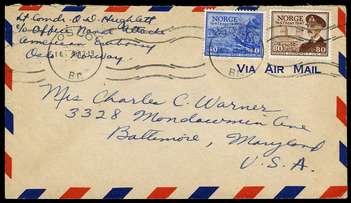 Lt Comdr O. D. Hughlett
c/o Office Naval Attache
American Embassy
Oslo Norway.
OSLO
Br
NORGE
40
NORGE
80
VIA AIR MAIL
Mrs Charles C. Warner
3328 Mondawmin Ave
Baltimore, Maryland
U.S.A.